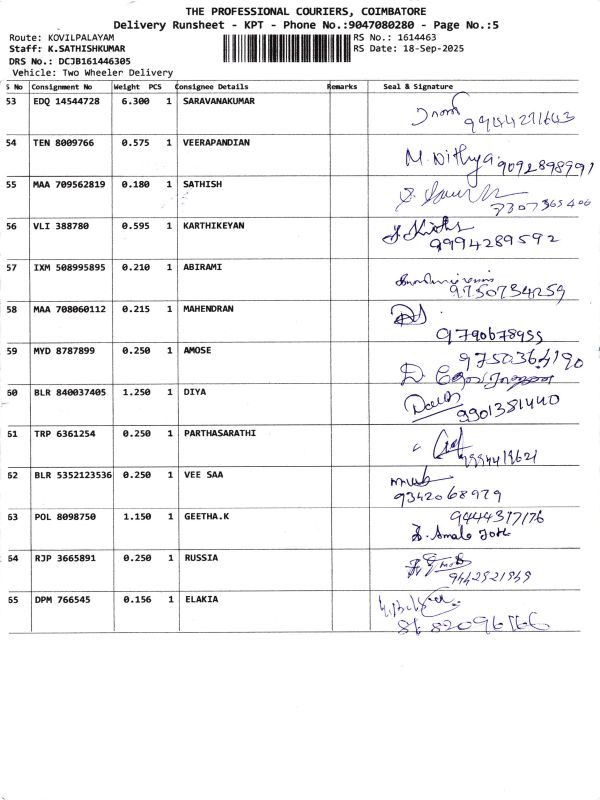 THE PROFESSIONAL COURIERS, COIMBATORE
Delivery Runsheet - KPT - Phone No.:9047080280 - Page No.:5
Route: KOVILPALAYAM RS No.: 1614463
Staff: K.SATHISHKUMAR RS Date: 18-Sep-2025
DRS No.: DCJB161446305
Vehicle: Two Wheeler Delivery
S No Consignment No Weight PCS Consignee Details Remarks Seal & Signature
53 EDQ 14544728 6.300 1 SARAVANAKUMAR
54 TEN 8009766 0.575 1 VEERAPANDIAN M. Nithya. 9092898991
55 MAA 709562819 0.180 1 SATHISH
7307365406
56 VLI 388780 0.595 1 KARTHIKEYAN
9994289592
57 IXM 508995895 0.210 1 ABIRAMI
9750734259
58 MAA 708060112 0.215 1 MAHENDRAN
9790678955
59 MYD 8787899 0.250 1 AMOSE 9750364190
60 BLR 840037405 1.250 1 DIYA
9901381440
61 TRP 6361254 0.250 1 PARTHASARATHI
62 BLR 5352123536 0.250 1 VEE SAA
9342068979
63 POL 8098750 1.150 1 GEETHA.K 9444317176
64 RJP 3665891 0.250 1 RUSSIA
65 DPM 766545 0.156 1 ELAKIA